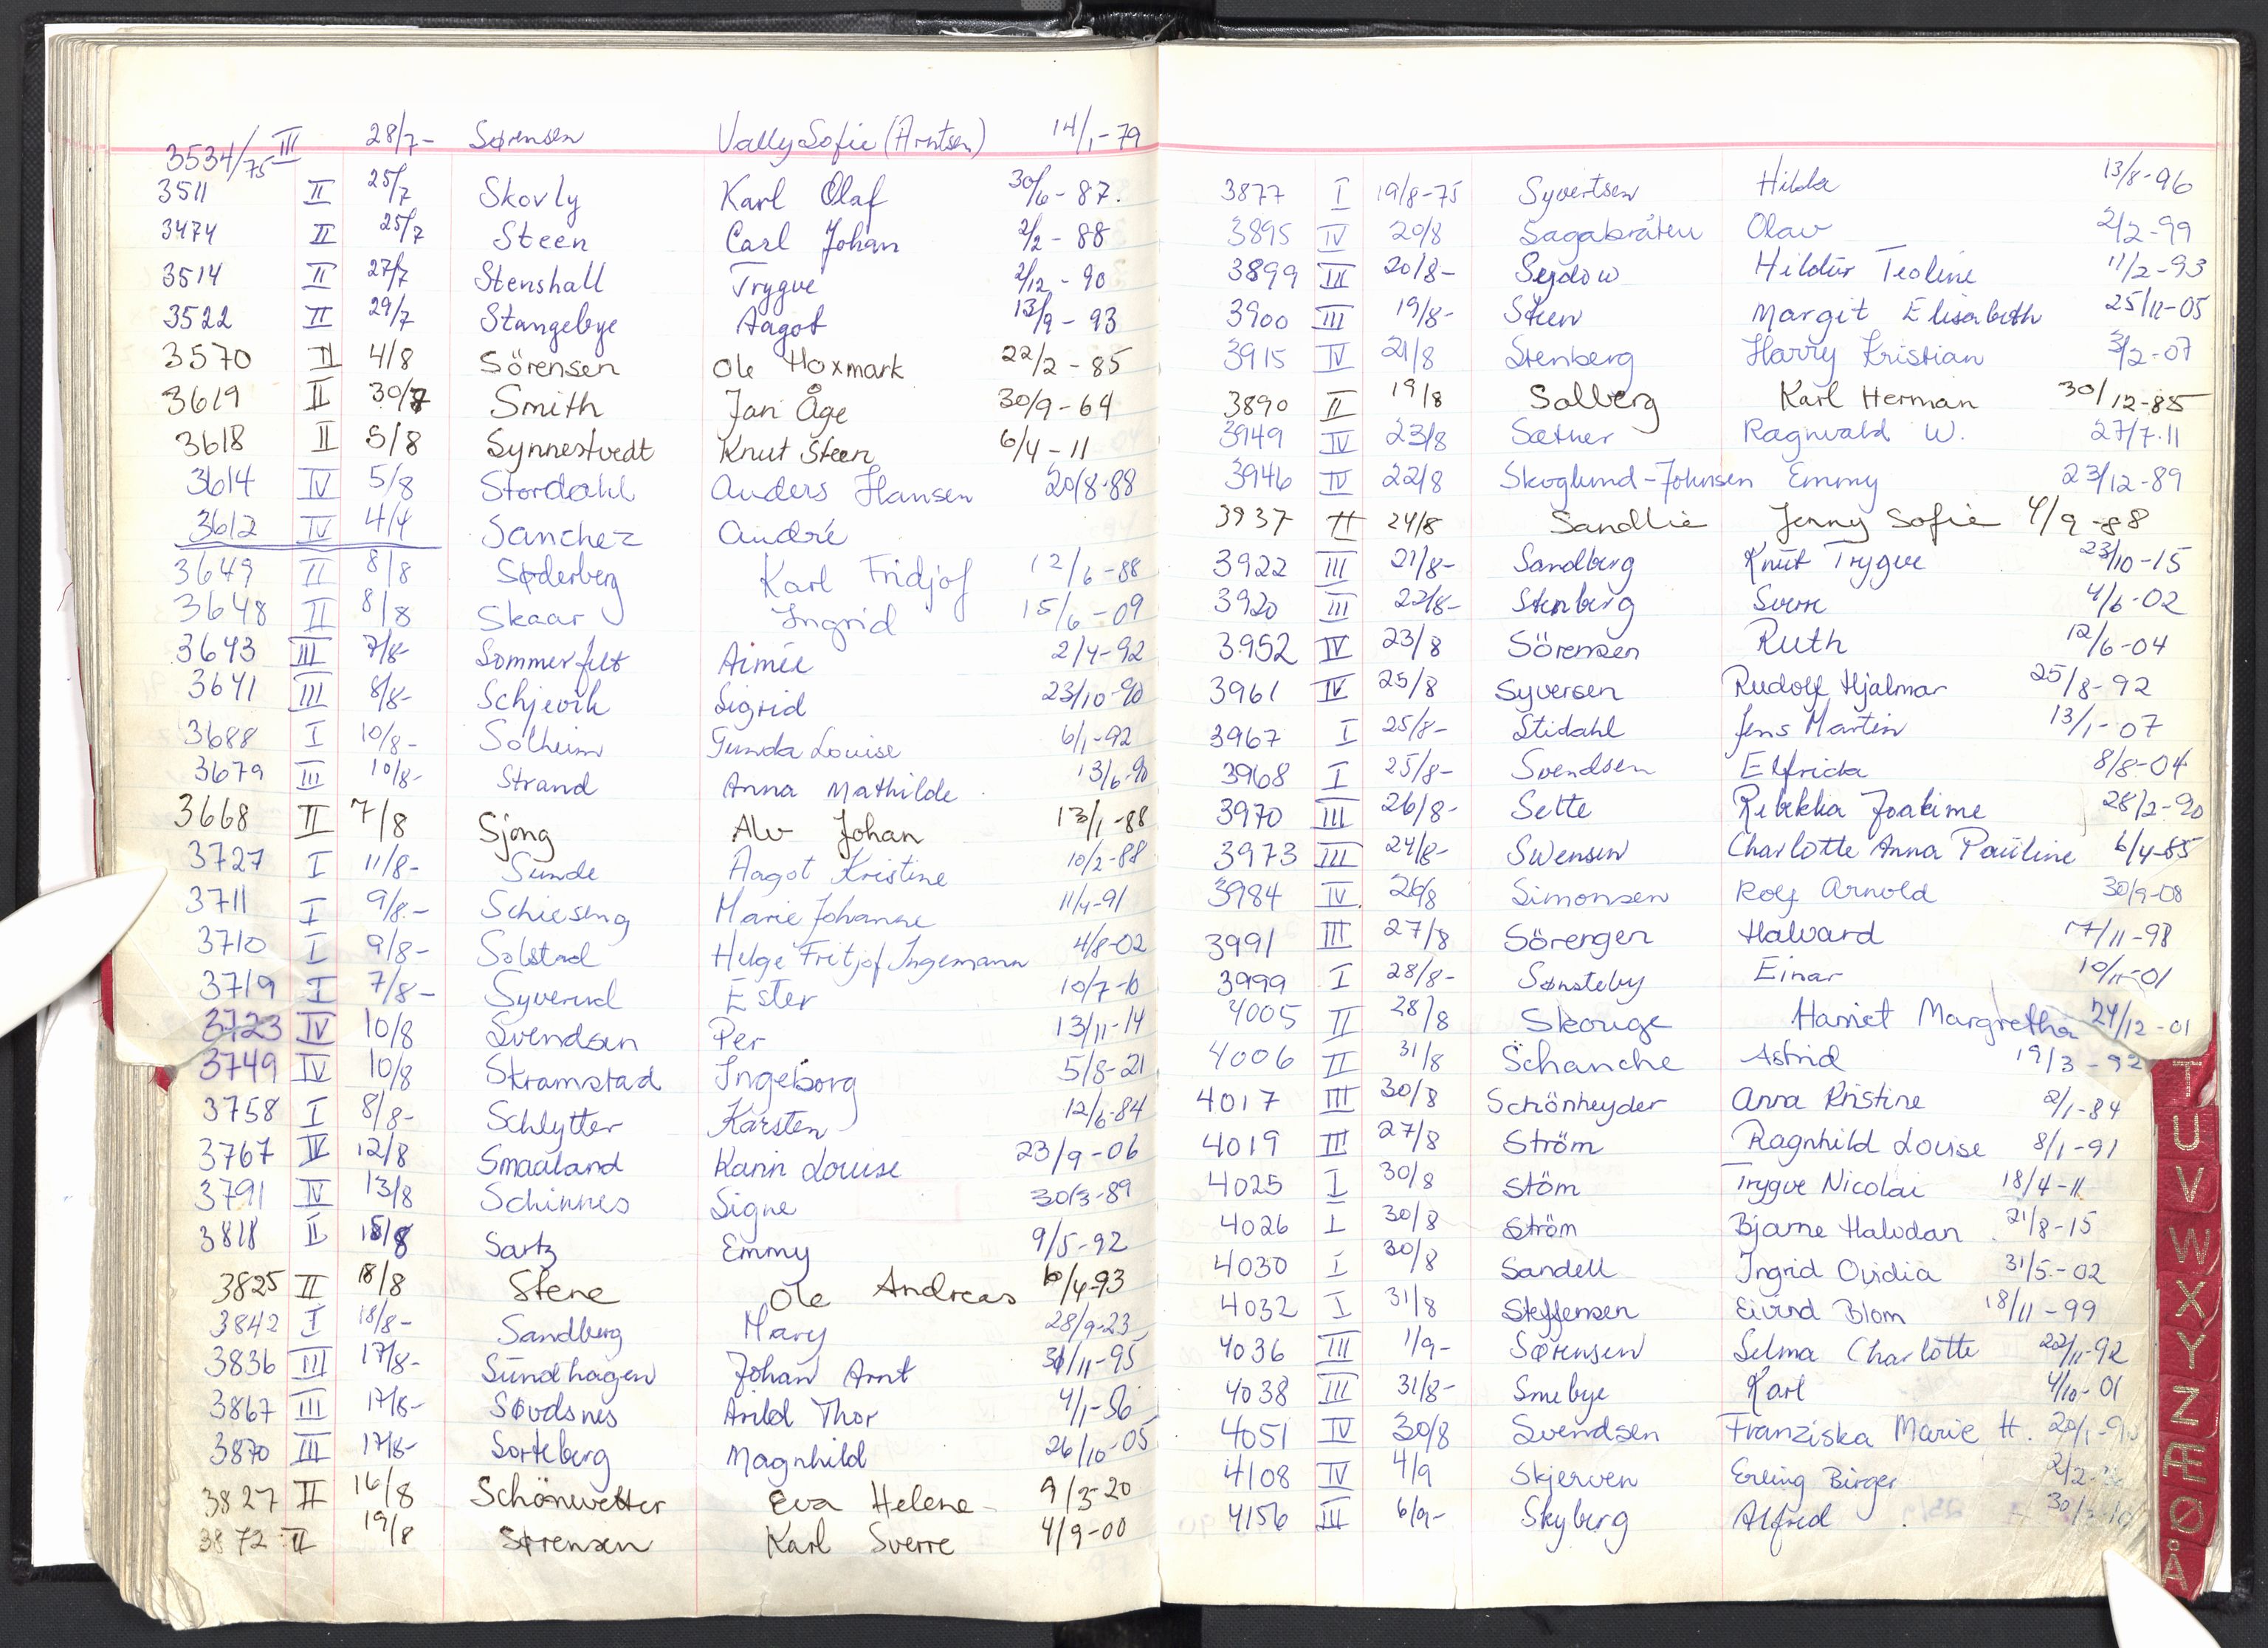 3534/75 III 28/7- Sørensen Vally Sofie (Arntsen) 14/1-79
3511 II 25/7 Skovly Karl Olaf 30/6-87.
3474 II 25/7 Steen Carl Johan 2/2-88
3514 II 27/7 Stenshall Trygve 2/12-90
3522 II 29/7 Stangebye Aagot 13/9-93
3570 II 4/8 Sörensen Ole Hoxmark 22/2-85
3619 II 30/7 Smith Jan Åge 30/9-64
3618 II 5/8 Synnestvedt Knut Steen 6/4-11
3614 IV 5/8 Stordahl Anders Hansen 20/8-88
3612 IV 4/4 Sanchez André
3649 II 8/8 Søderberg Karl Fridjof 12/6-88
3648 II 8/8 Skaar Ingrid 15/6-09
3643 III 7/8- Sommerfelt Aimée 2/4-92
3641 III 8/8- Schjevik Sigrid 23/10-90
3688 I 10/8- Solheim Gunda Louise 6/1-92
3679 III 10/8- Strand Anna Mathilde 13/6-90
3668 II 7/8 Sjong Alv Johan 13/1-88
3727 I 11/8- Sunde Aagot Kristine 10/2-88
3711 I 9/8- Schiesing Marie Johanne 11/4-91
3710 I 9/8- Solstad Helge Fritjof Ingemann 4/8-02
3719 I 7/8- Syverud Ester 10/7-10
3723 IV 10/8 Svendsen Per 13/11-14
3749 IV 10/8 Skramstad Ingeborg 5/8-21
3758 I 8/8- Schlytter Karsten 12/6-84
3767 IV 12/8 Smaaland Karin Louise 23/9-06
3791 IV 13/8 Schinnes Signe 30/3-89
3818 II 15/8 Sartz Emmy 9/5-92
3825 II 18/8 Stene Ole Andreas 6/4-93
3842 I 18/8- Sandberg Mary 28/9-23
3836 III 17/8- Sundhagen Johan Arnt /11-95
3867 III 17/8- Søvdsnes Arild Thor 4/1-56
3870 III 17/8- Sorteberg Magnhild 26/10-05
3827 II 16/8 Schönwetter Eva Helene 9/3-20
3872 II 19/8 Sørensen Karl Sverre 4/9-00
3877 I 19/8-75 Syvertsen Hilda 13/8-96
3895 IV 20/8 Sagabråten Olav 2/2-99
3899 III 20/8- Seydow Hildur Teoline 11/2-93
3900 III 19/8- Steen Margit Elisabeth 25/11-05
3915 IV 21/8 Stenberg Harry Kristian 3/2-07
3890 II 19/8 Solberg Karl Herman 30/12-85
3949 IV 23/8 Sæther Ragnvald W. 27/7.11
3946 IV 22/8 Skoglund-Johnsen Emmy 23/12-89
3937 II 24/8 Sandlie Jenny Sofie 4/9-88
3922 III 21/8- Sandberg Knut Trygve 23/10-15
3920 III 22/8- Stenberg Sverre 4/6-02
3952 IV 23/8 Sörensen Ruth 12/6-04
3961 IV 25/8 Syversen Rudolf Hjalmar 25/8-92
3967 I 25/8- Stidahl Jens Martin 13/1-07
3968 I 25/8- Svendsen Elfrida 8/8-04
3970 III 26/8- Sette Rebekka Joakime 28/2-90
3973 III 24/8- Swensen Charlotte Anna Pauline 6/4-85
3984 IV 26/8 Simonsen Rolf Arnold 30/9-08
3991 III 27/8 Sörengen Halvard 17/11-98
3999 I 28/8- Sønsteby Einar 10/11-01
4005 II 28/8 Skouge Harriet Margretha 24/12-01
4006 II 31/8 Schanche Astrid 19/3-92
4017 III 30/8 Schönheyder Anna Kristine 2/1-84
4019 III 27/8 Ström Ragnhild Louise 8/1-91
4025 I 30/8 Stöm Trygve Nicolai 18/4-11
4026 I 30/8 Ström Bjarne Halvdan 21/8-15
4030 I 30/8 Sandell Ingrid Ovidia 31/5-02
4032 I 31/8 Steffensen Eivind Blom 18/11-99
4036 III 1/9- Sørensen Selma Charlotte 22/11-92
4038 III 31/8- Smebye Karl 4/10-01
4051 IV 30/8 Svendsen Franziska Marie H. 20/1-9
4108 IV 4/9 Skjerven Erling Birger 2/2-
4156 III 6/9- Skyberg Alfred
T
U
V
W
X
Y
Z
Æ
Ø
Å